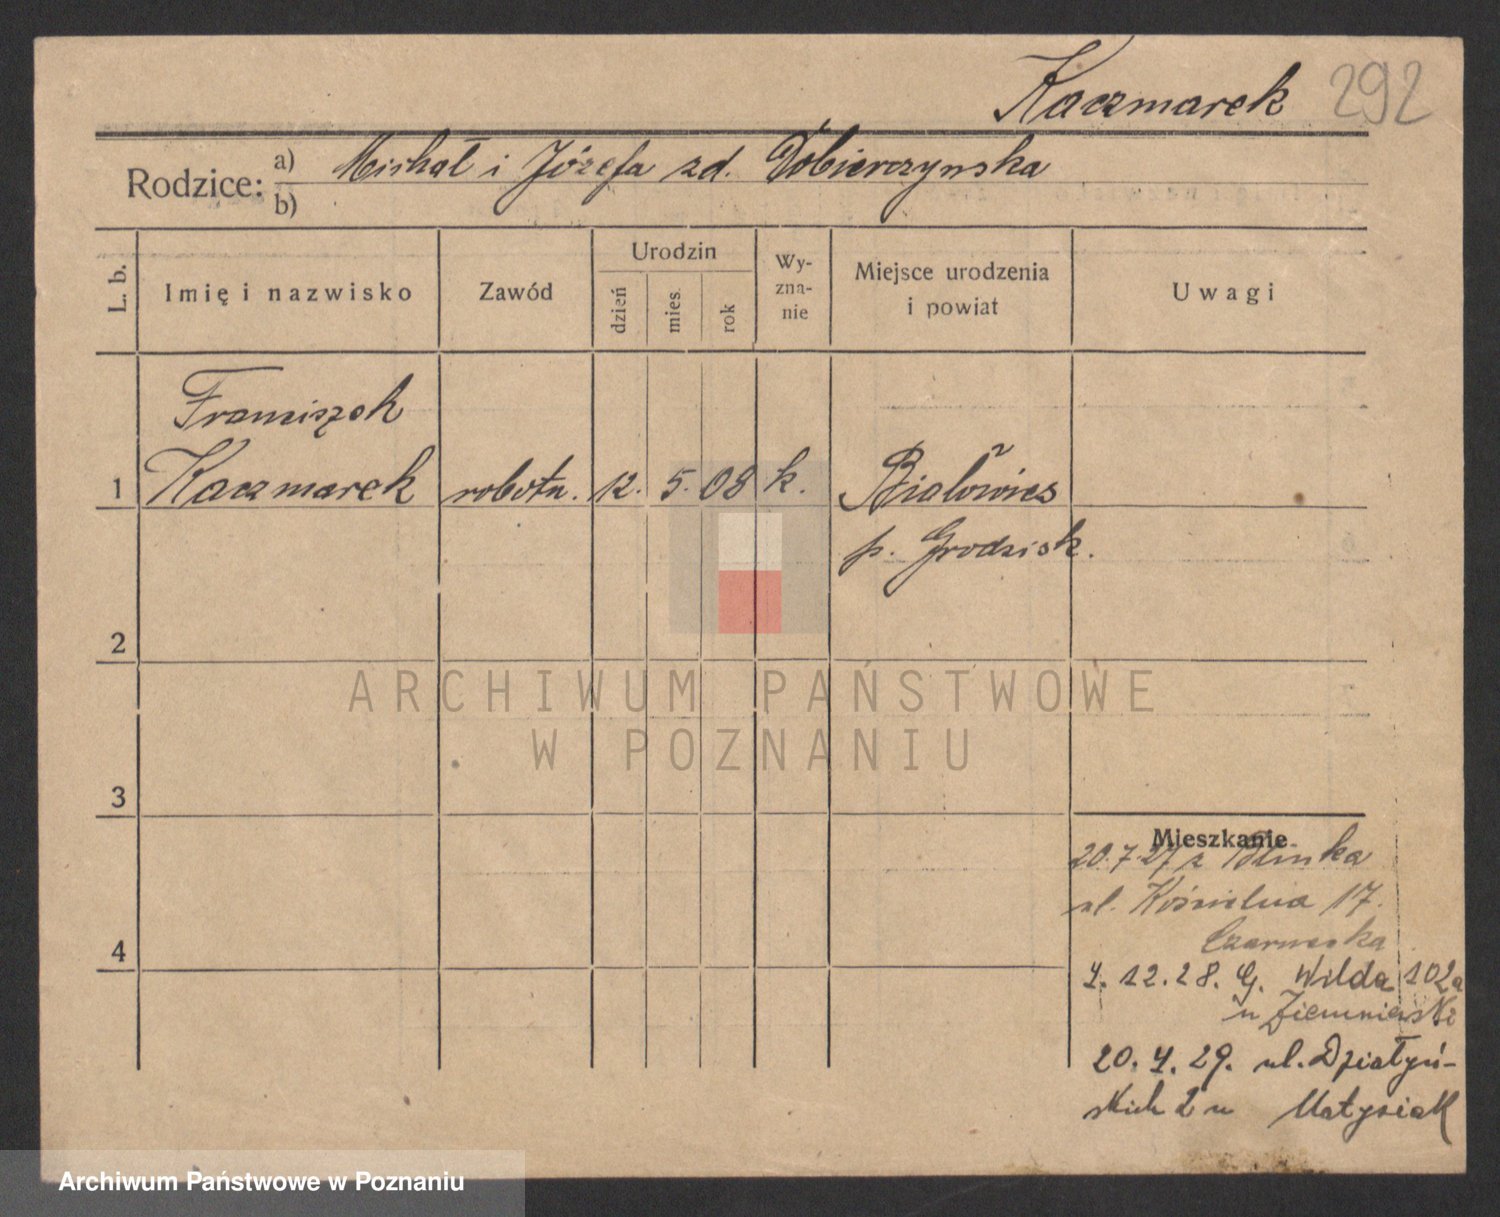 Kaczmarek 292
Rodzice: a) Michał i Józefa zd. Dobierczyńska
b)
L. b. Imię i nazwisko Zawód Urodzin dzień mies. rok Wy-zna-nie Miejsce urodzenia i powiat Uwagi
Franciszek
1 Kaczmarek robotn. 12. 5. 08 k.
p. Grodzisk.
2
ARCHIWUM PAŃSTWOWE
W POZNANIU
3
Mieszkanie
20.7.27 z
ul. Kościelna 17.
4
4. 12. 28. G. Wilda 102a
u
20. 4. 29. ul. Działyń-
skich 2 u Matysiak
Archiwum Państwowe w Poznaniu